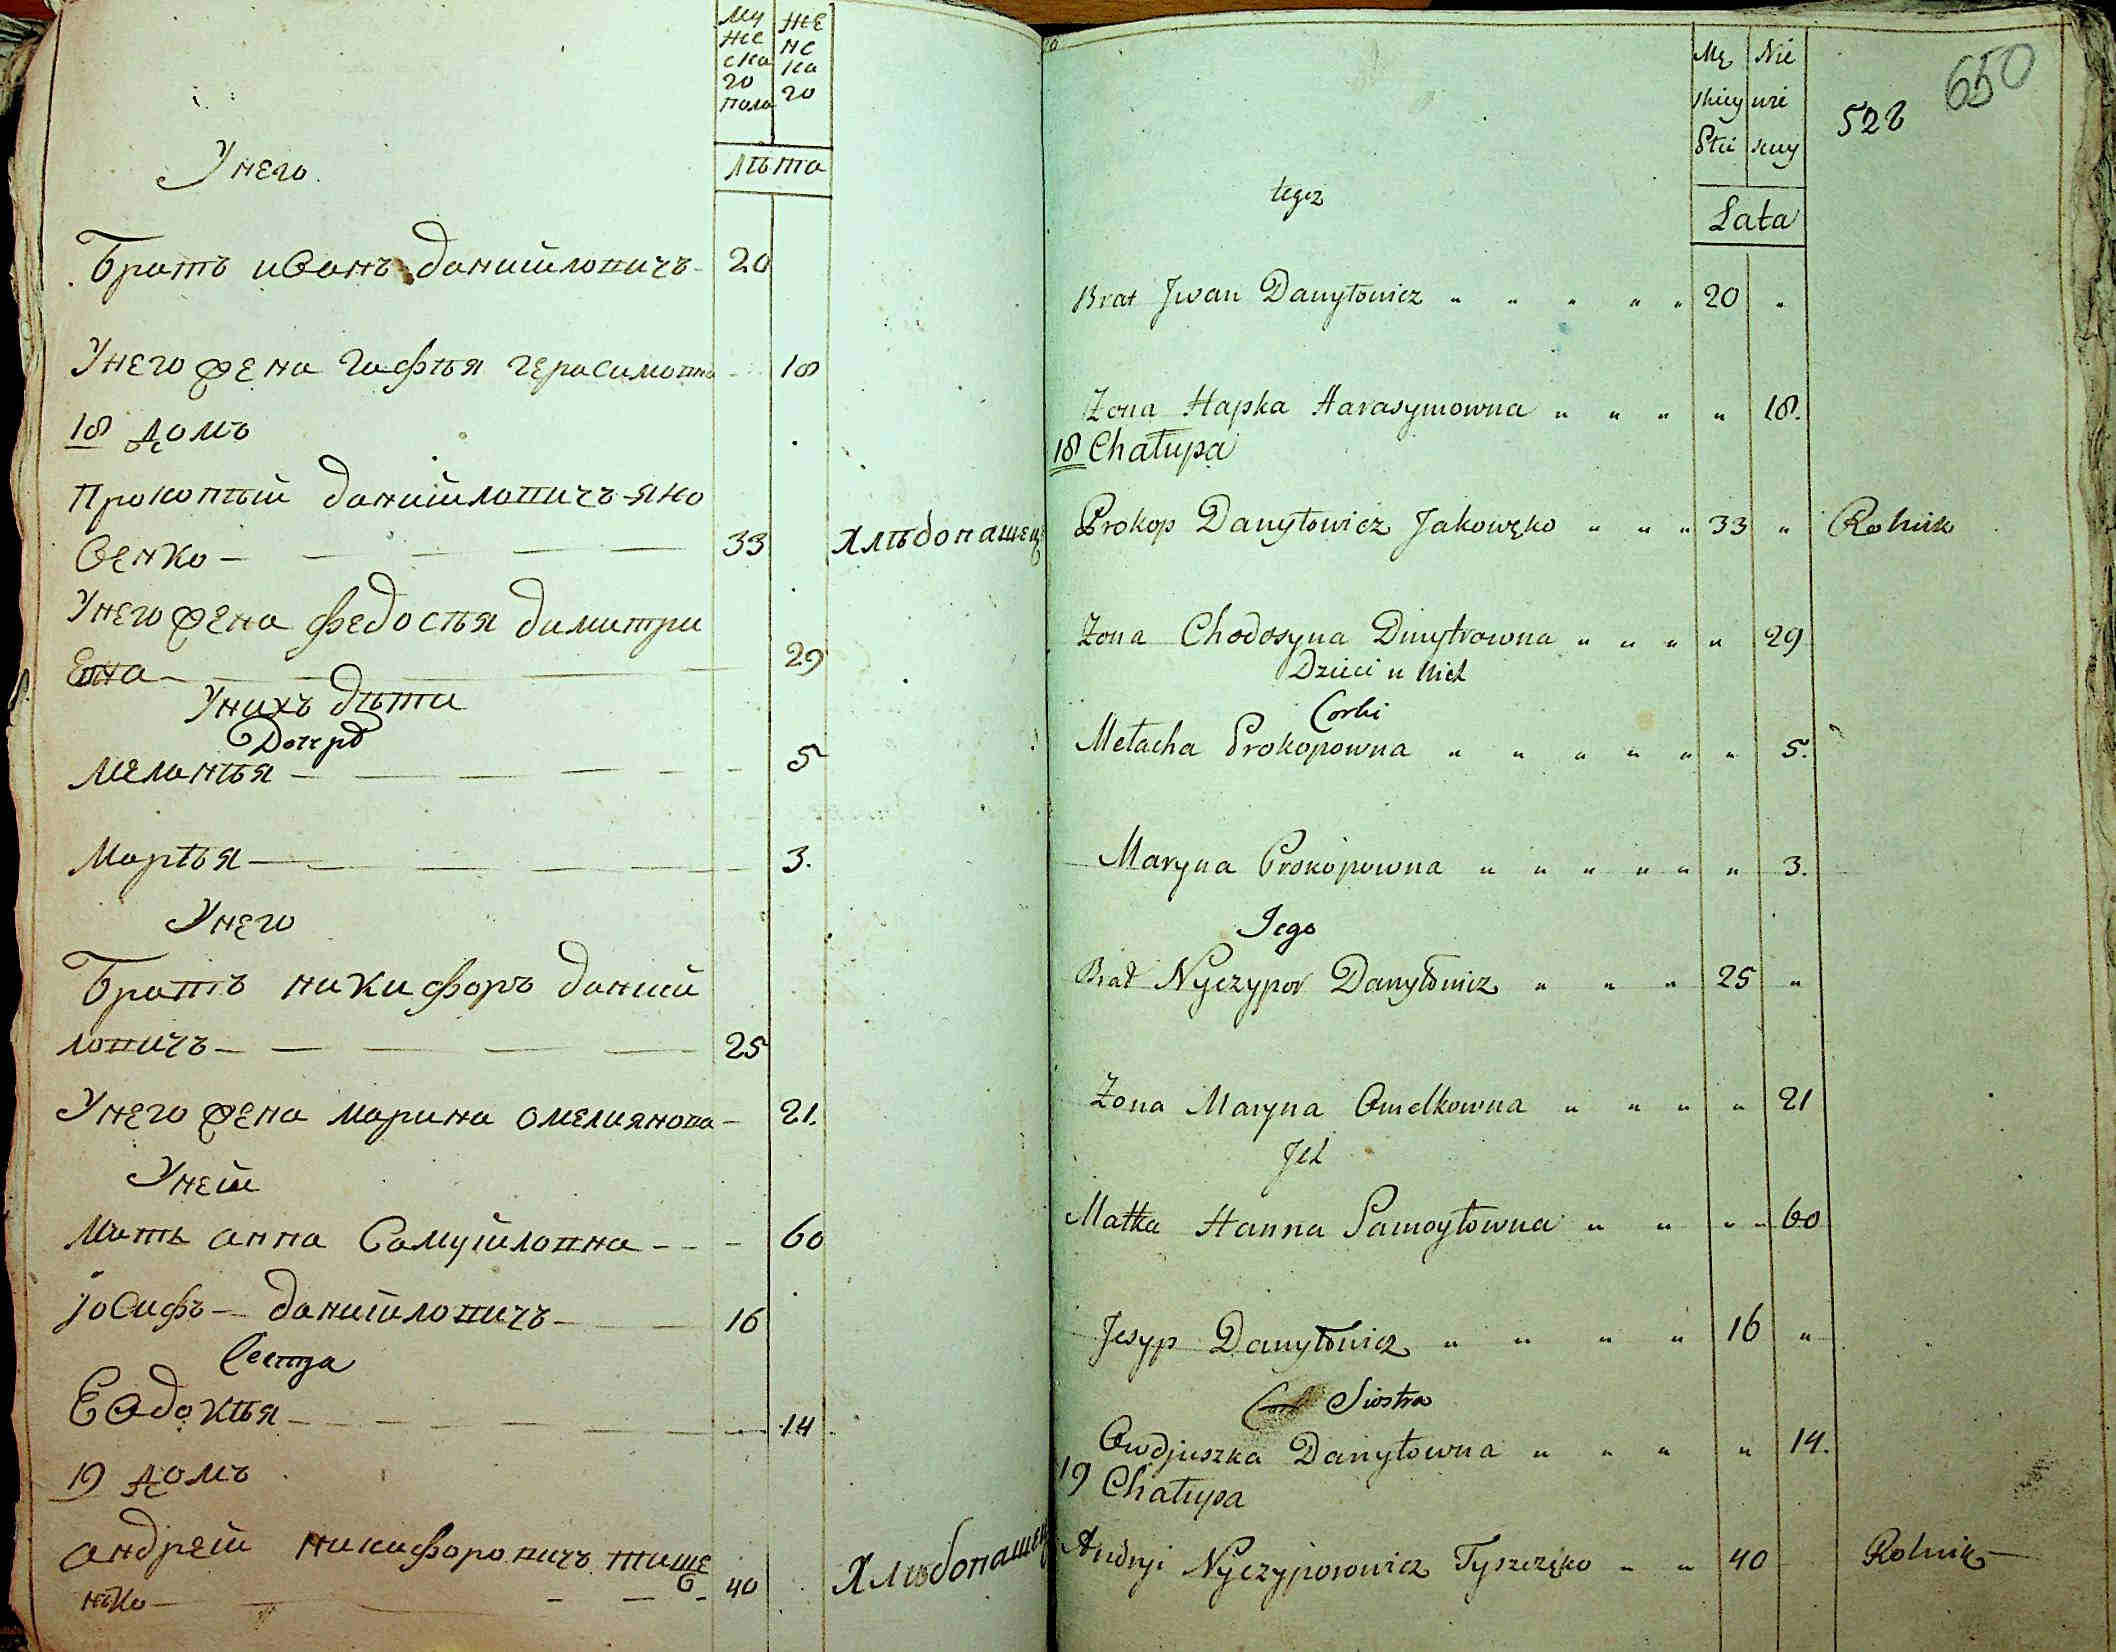 Му
жес
ска
го
пола
же
нс
ка
го
Лѣта
У него
Братъ иванъ даниилovичъ 20
У него жена гафѣя герасимовна 18
18 домъ
Прокопѣй даниилович яко
венко 33 Хлѣбопашец
У него жена федосѣя димитри
евна 29
У нихъ дѣти
Дочерѣ
Меланѣя 5
Марѣя 3.
У него
Братъ никифоръ дании
ловичъ 25
У него жена марина омелиянова 21.
У ней
Мать анна Самуиловна 60
Іосифъ даниилович 16
Сестра
Евдокѣя 14
19 домъ
андрей никифорович тище
нко 40 Хлѣбопашец
Mę
skiey
Płci
Nie
wie
sciey
Lata
528
650
tegoz
Brat Jwan Danyłowicz 20
Zona Hapka Harasymowna 18.
18 Chałupa
Prokop Danyłowicz Jakowęko 33 Rolnik
Zona Chodosyna Dmytrowna 29
Dzieci u nich
Corki
Mełacha Prokopowna 5.
Maryna Prokopowna 3.
Jego
Brat Nyczypor Danyłowicz 25
Zona Maryna Omelkowna 21
Jch
Matka Hanna Samoyłowna 60
Jesyp Danyłowicz 16
Siostra
Owdjuszka Danyłowna 14.
19 Chałupa
Andryi Nyczyporowicz Tyszczęko 40 Rolnik